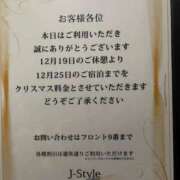 お客様各位
本日はご利用いただき
誠にありがとうございます
12月19日のご休憩より
12月25日のご宿泊までを
クリスマス料金とさせていただきます
どうぞご了承ください
お問い合わせはフロント9番まで
J-Style